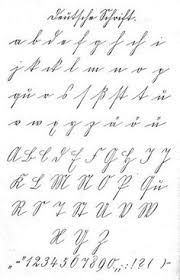 Deutsche Schrift.
a b c d e f g h ch i
j k ck l m n o p
qu r s ſ ß st t u
v w x y z ä ö ü
A B C D E F G H I J
K L M N O P Qu
R S T St U V W
X Y Z
„-“ 1234567890.,;:!?( )-